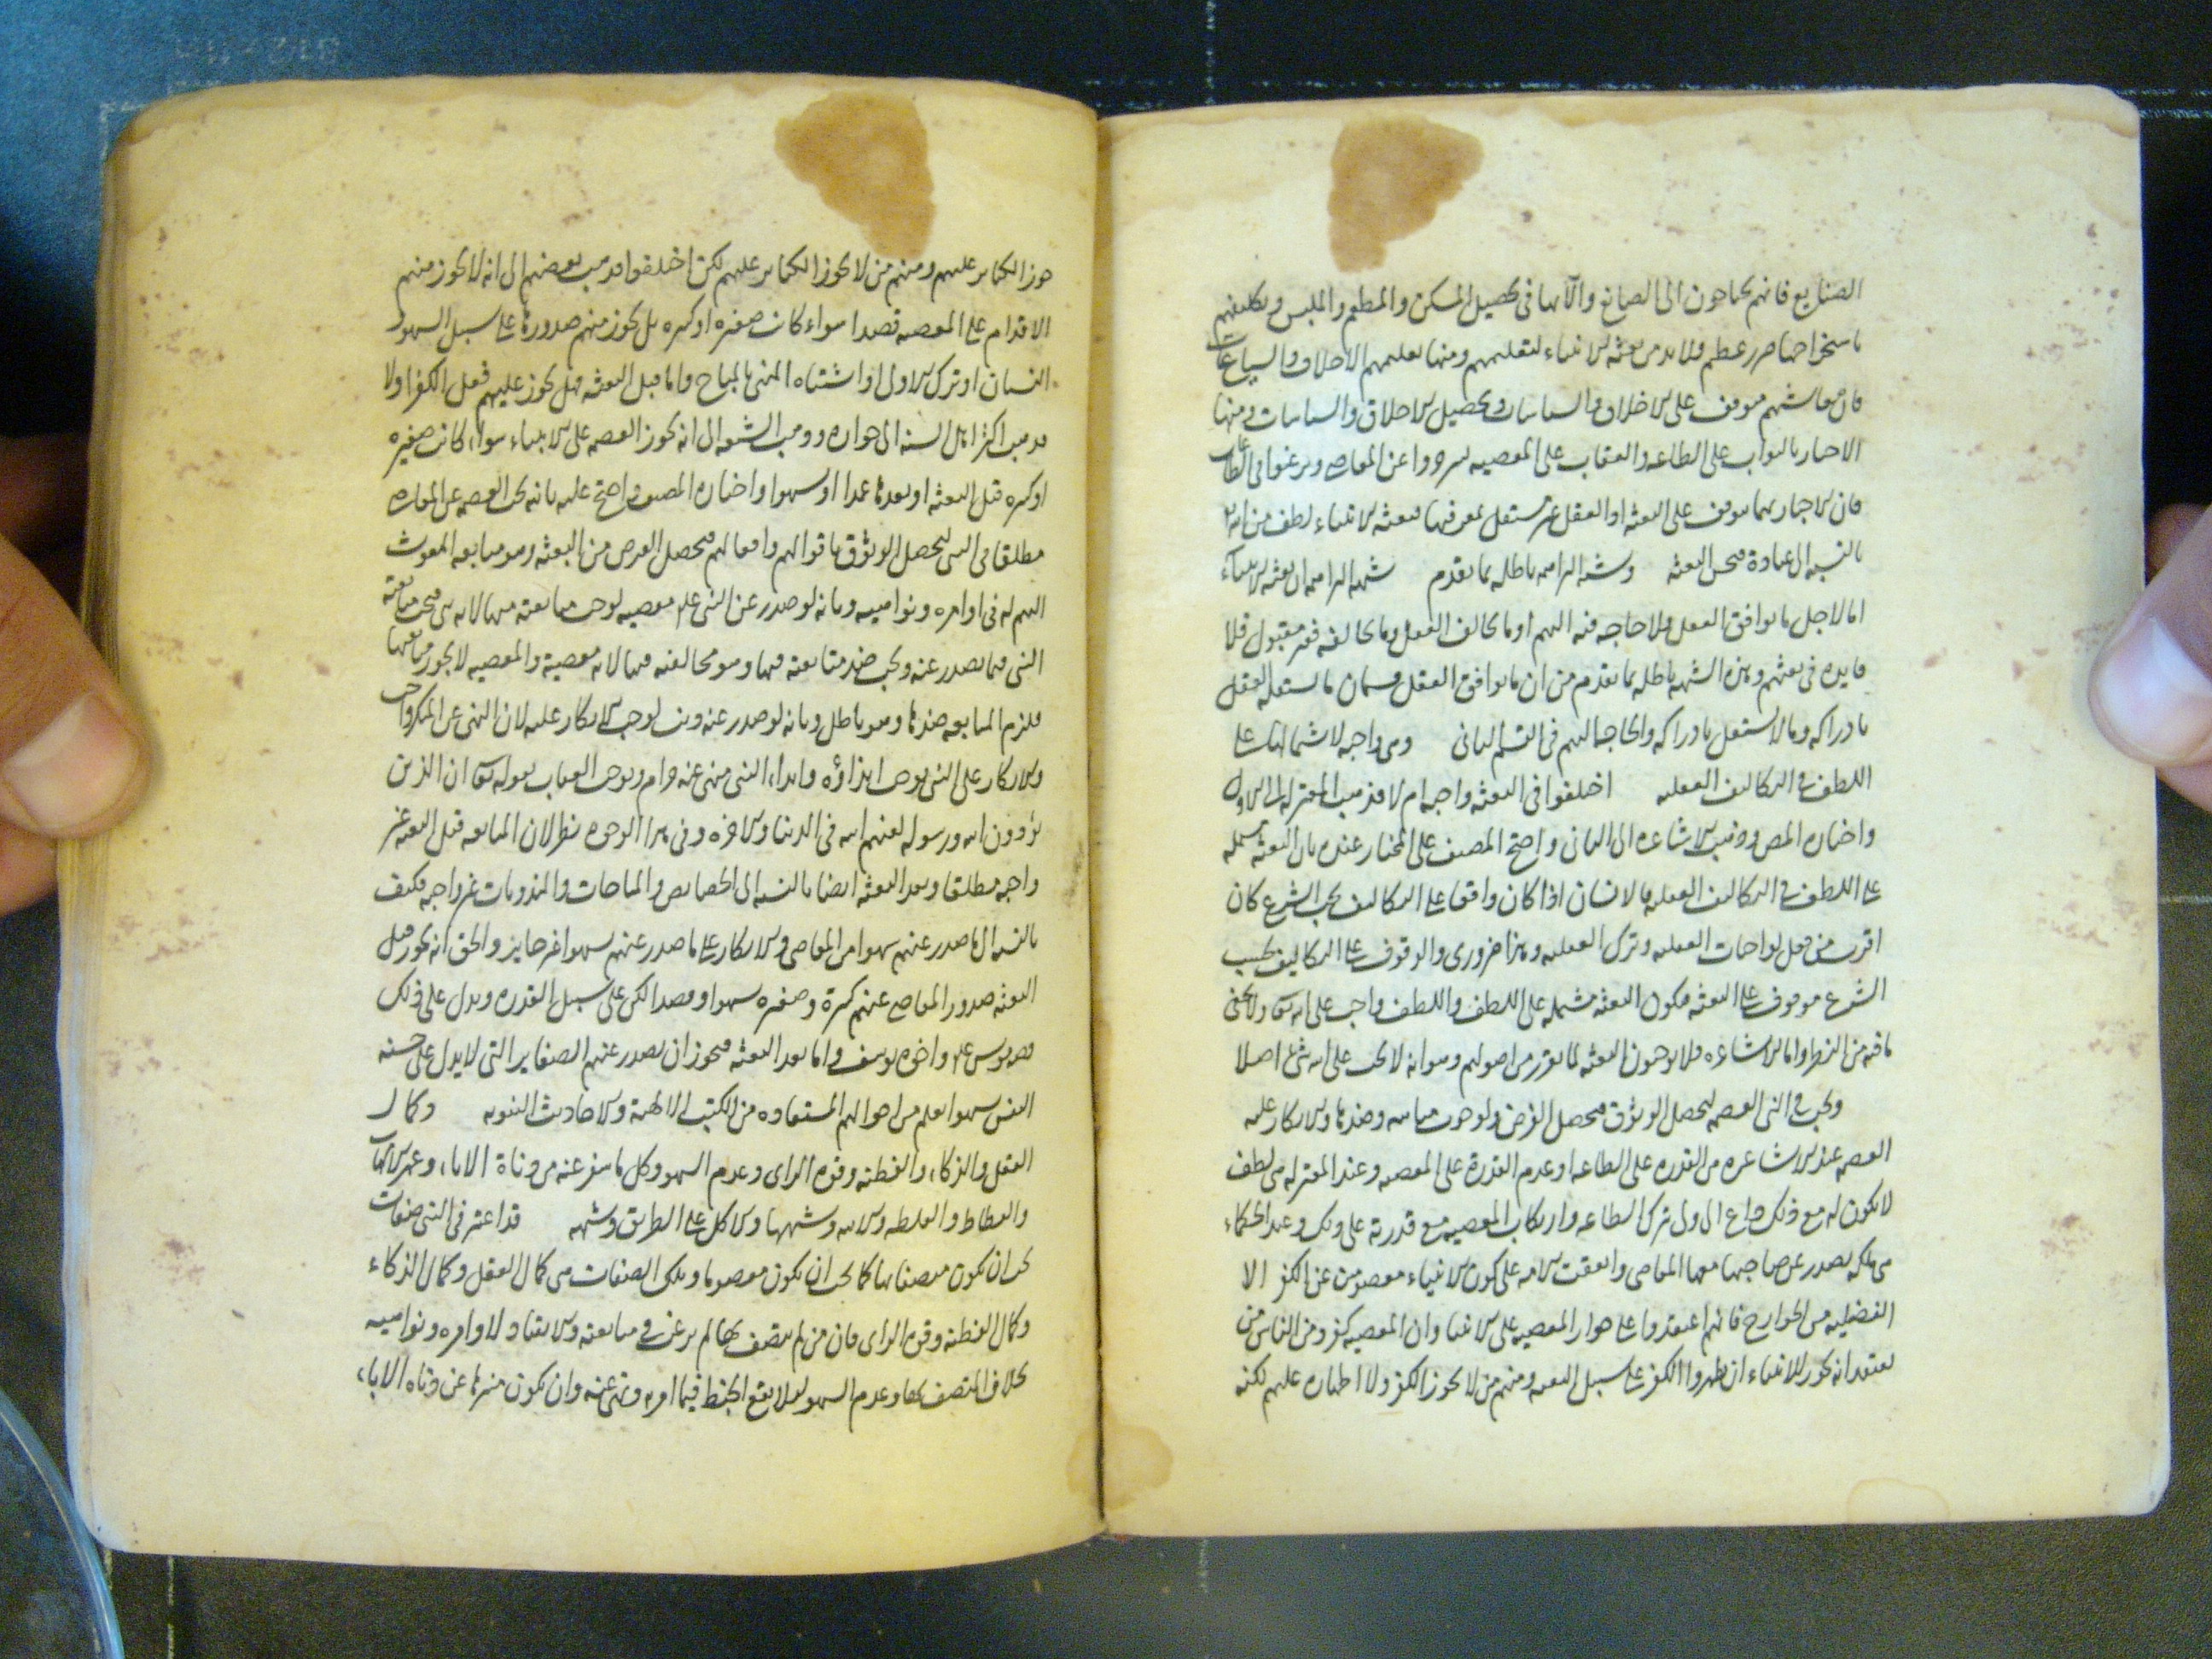 الصنايع فانهم يحتاجون الى الصناع والآتها فى تحصيل المسكن والمطعم والملبس وتكليفهم
باستخراجها ضرر عظيم فلا بد من بعثة الانبياء لتعليمهم ومنها تعليمهم الاخلاق والسياسات
فان معاشهم موقوف على الاخلاق والسياسات وتحصيل الاخلاق والسياسات ومنها
الاخبار بالثواب على الطاعه والعقاب على المعصيه لينزجروا عن المعاصى ويرغبوا فى الطاعات
فان الاخبار بهما موقوف على البعثه اذ العقل غير مستقل بمعرفتها فبعثة الانبياء لطف من الله
بالنسبه الى عباده فيحسن البعثه وشبه البراهمه باطله بما تقدم شبهة البراهمه ان بعثة الانبياء
اما لاجل ما يوافق العقل ولا حاجه فيه اليهم او ما يخالف العقل وما يخالفه غير مقبول فلا
فايده فى بعثهم وهذه الشبهه باطله بما تقدم من ان ما يوافق العقل قسمان ما يستقل العقل
بادراكه وما لا يستقل بادراكه والحاجه اليهم فى القسم الثانى وهى واجبه لاشتمالها على
اللطف فى التكاليف العقليه اختلفوا فى البعثه واجبه ام لا فذهب المعتزله الى الاول
واختاره المص وذهب الاشاعره الى الثانى واحتج المصنف على المختار عنده بان البعثه مشتمله
على اللطف فى التكاليف العقليه فالانسان اذا كان واقفا على التكاليف بحسب الشرع كان
اقرب من فعل الواجبات العقليه وترك العقليه وهذا ضرورى والوقوف على التكاليف بحسب
الشرع موقوف على البعثه فيكون البعثه مشتمله على اللطف واللطف واجب على الله تعا ولا يخفى
ما فيه من النظر واما الاشاعره فلا يوجبون البعثه لما تقرر من اصولهم وهو انه لا يجب على الله شئ اصلا
ويجب فى النبى العصمه ليحصل الوثوق فيحصل الغرض ولوجوب متابعته وضدها والانكار عليه
العصمه عند الاشاعره هى القدره على الطاعه او عدم القدرة على المعصيه وعند المعتزله هى لطف
لا يكون له مع ذلك داع الى ترك الطاعه وارتكاب المعصيه مع قدرته على ذلك وعند الحكماء
هى ملكه يصدر عن صاحبها معها المعاصى واتفقت الامه على كون الانبياء معصومين عن الكفر الا
الفضيليه من الخوارج فانهم اعتقدوا على جواز المعصيه على الانبيا وان المعصيه كفر ومن الناس من
يعتقد انه يجوز للانبياء ان يظهروا الكفر على سبيل التقيه ومنهم من لا يجوز الكفر ولا اظهاره عليهم لكنه
جوز الكباير عليهم ومنهم من لا يجوز الكباير عليهم لكن اختلفوا فذهب بعضهم الى انه لا يجوز منهم
الاقدام على المعصيه قصدا سواء كانت صغيره او كبيره بل يجوز منهم صدورها على سبيل السهو
النسيان او ترك الاولى او اشتباه المنهى بالمباح واما قبل البعثه فهل يجوز عليهم فعل الكفر او لا
فذهب اكثر اهل السنه الى جوازه وذهب الشيعه الى انه يجوز العصمه على الانبياء سواء كانت صغيره
او كبيره قبل البعثه او بعدها عمدا او سهوا واختاره المصنف واحتج عليه بانه يجب العصمه عن المعاصى
مطلقا فى النبى ليحصل الوثوق باقوالهم وافعالهم فيحصل الغرض من البعثه وهو متابعه المبعوث
اليهم له فى اوامره ونواهيه وبانه لو صدر عن النبى عليه معصيه لوجب متابعته فيها لانه نبى فيجب متابعته
النبى فيما يصدر عنه ويجب ضد متابعته فيها وهو مخالفته فيها لانه معصية والمعصيه لا يجوز متابعتها
فيلزم المتابعه وضدها وهو باطل وبانه لو صدر عنه ذنب لوجب الانكار عليه لان النهى عن المنكر واجب
والانكار على النبى يوجب ايذاؤه وايذاء النبى منهى عنه حرام ويوجب العقاب بقوله تعا ان الذين
يؤذون الله ورسوله لعنهم الله فى الدنيا والاخره وفى هذا الوجوه نظر لان المتابعه قبل البعثه غير
واجبه مطلقا وبعد البعثه ايضا بالنسبه الى الخصايص والمباحات والمندوبات غير واجبه فكيف
بالنسبه الى ما صدر عنهم سهوا من المعاصى والانكار على ما صدر عنهم سهوا غير جايز والحق انه يجوز قبل
البعثه صدور المعاصى عنهم كبيرة وصغيره سهوا وقصدا لكن على سبيل الندره ويدل على ذلك
قصه يونس عليه واخوه يوسف واما بعد البعثه فيجوز ان يصدر عنهم الصغاير التى لا يدل على خسته
النفس سهوا يعلم من احوالهم المستفاده من الكتب الالهية والاحاديث النبويه وكمال
العقل والذكاء والفطنه وقوه الراى وعدم السهو وكل ما ينفر عنه من دناة الاباء وعهر الامهات
والفظاظ والغلظه والابنه وشبهها والاكل على الطريق وشبهه قد اعتبر فى النبى صفات
يجب ان يكون متصفا بها كما يجب ان يكون معصوما وتلك الصفات هى كمال العقل وكمال الذكاء
وكمال الفطنه وقوه الراى فان من لم يتصف بها لم يرغب فى متابعته والانقياد لاوامره ونواهيه
بخلاف المتصف بها وعدم السهو لئلا يقع الخبط فيما امر به ونهى عنه وان يكون منزها عن دناه الاباء